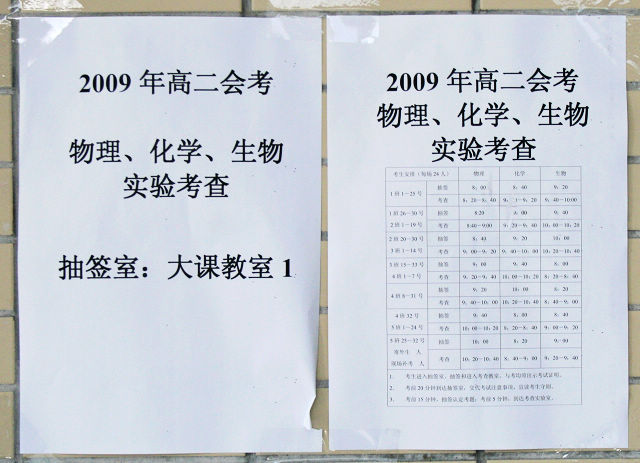 2009 年高二会考
物理、化学、生物
实验考查
抽签室：大课教室 1
2009 年高二会考
物理、化学、生物
实验考查
考生安排（每场 24 人） 物理 化学 生物
1 班 1－25 号 抽签 8：00 8：40 9：20
考查 8：20－8：40 9：20 9：40－10:00
1 班 26－30 号 抽签 8:20 9：40
2 班 1－19 号 考查 8:40－9:00 9：20－9：40 10：00－10：20
2 班 20－30 号 抽签 8：40 9：20 10：00
3 班 1－14 号 考查 9：00－9：20 9：40－10：00 10：20－10：40
3 班 15－33 号 抽签 9：00 9：40 8：00
4 班 1－7 号 考查 9：20－9：40 10：00－10：20 8：20－8：40
4 班 8－31 号 抽签 9：20 10：00 8：20
考查 9：40－10：00 10：20－10：40 8：40－9：00
4 班 32 号 抽签 9：40 8：00 8：40
5 班 1－24 号 考查 10：00－10：20 8：20－8：40 9：00－9：20
5 班 25－32 号 抽签 10：00 8：20 9：00
寄外生 人
现场补考 人 考查 10：20－10：40 8：40－9：00 9：20－9：40
1. 考生进入抽签室、抽签和进入考查教室，与考均须出示考试证明。
2. 考前 20 分钟到达抽签室，交代考试注意事项，宣读考生守则。
3. 考前 15 分钟，抽签认定考题；考前 5 分钟，到达考查实验室。